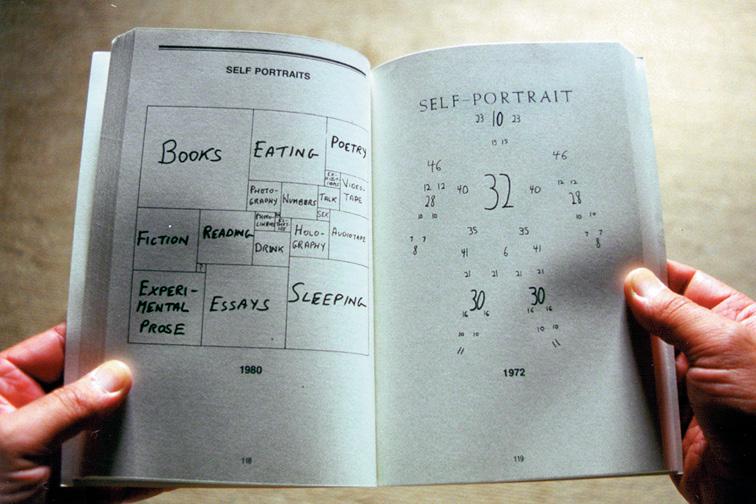 SELF PORTRAITS
BOOKS
EATING
POETRY
VIDEO-
TAPE
PHOTO-
GRAPHY
NUMBERS
TALK
SEX
FICTION
READING
DRINK
HOLO-
GRAPHY
AUDIOTAPE
EXPERI-
MENTAL
PROSE
?
ESSAYS
SLEEPING
1980
118
SELF-PORTRAIT
23 10 23
13 13
46 46
12 12 40 32 40 12 12
28 28
10 10 10 10
35 35
7 7 7 7
8 8
41 6 41
21 21 21 21
30 30
16 16 16 16
10 10 10 10
11 11
1972
119